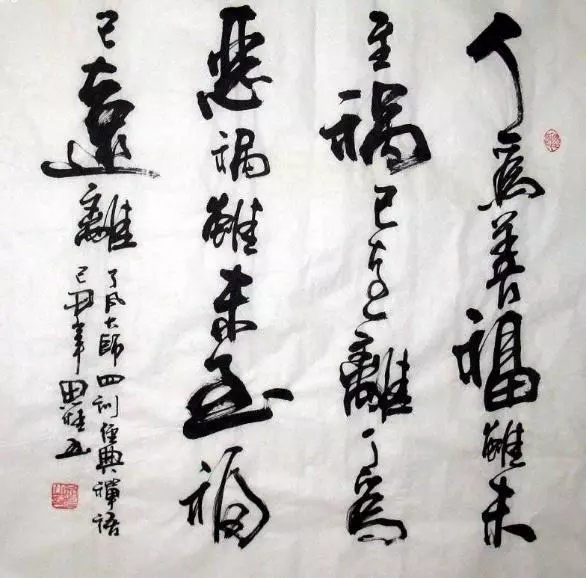 人為善福雖未
至禍已遠離人為
惡禍雖未至福
已遠離
了凡大師四训經典禪語
己丑年田雄书